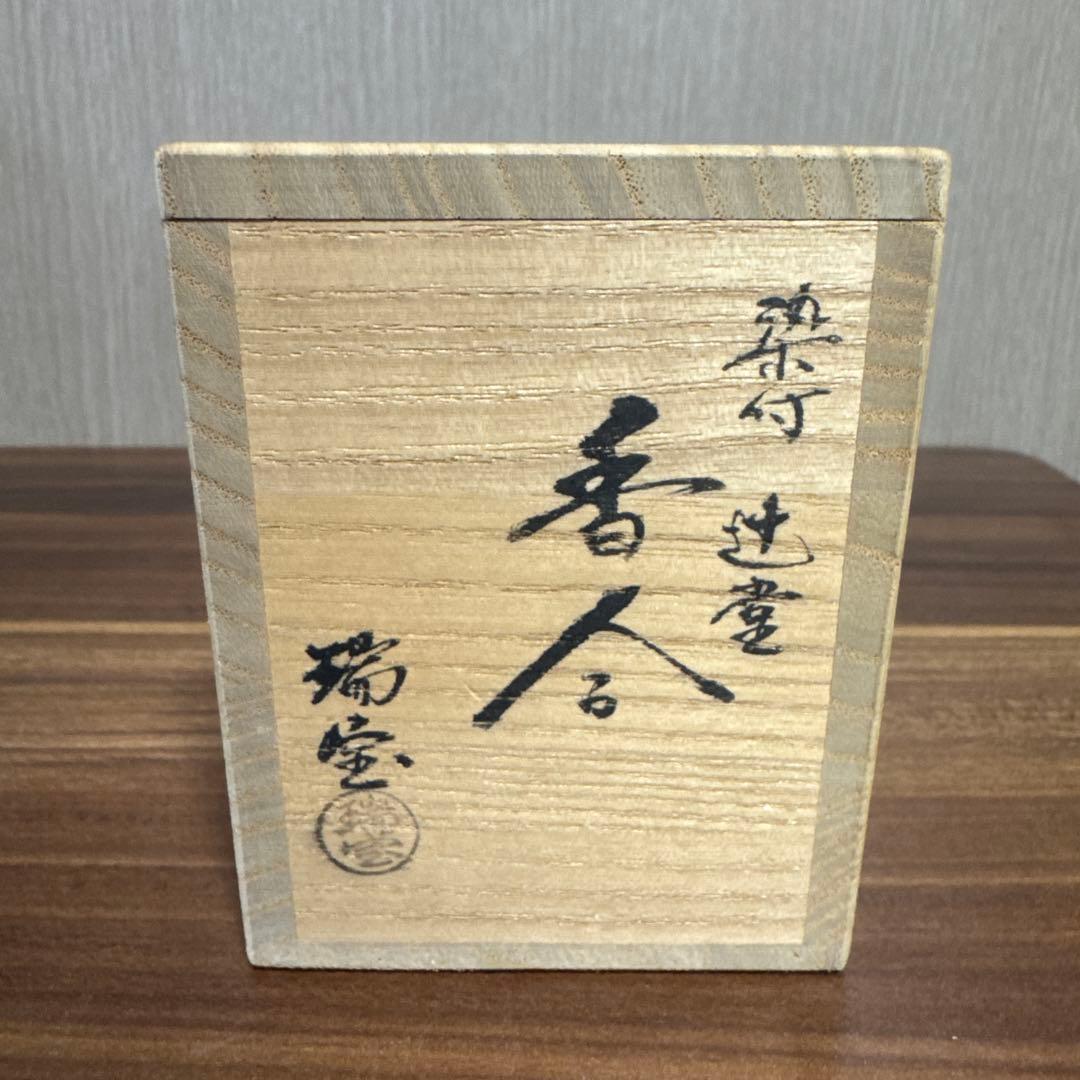 染付 辻堂
香合
瑞宝
瑞宝